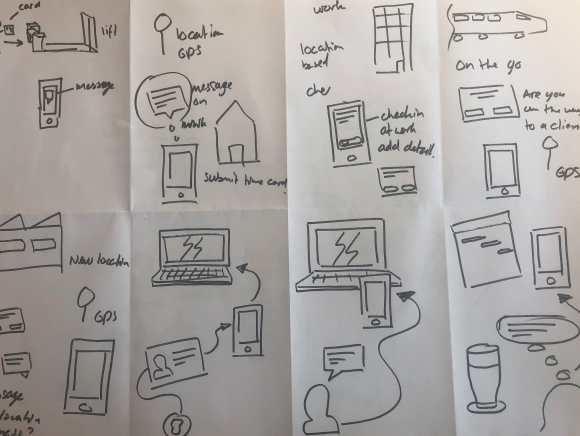 card
lift
message
location
GPS
message
on
submit time card
work
location
based
che
checkin
at work
add detail.
on the go
Are you
on the way
to a client
GPS
New location
GPS
location